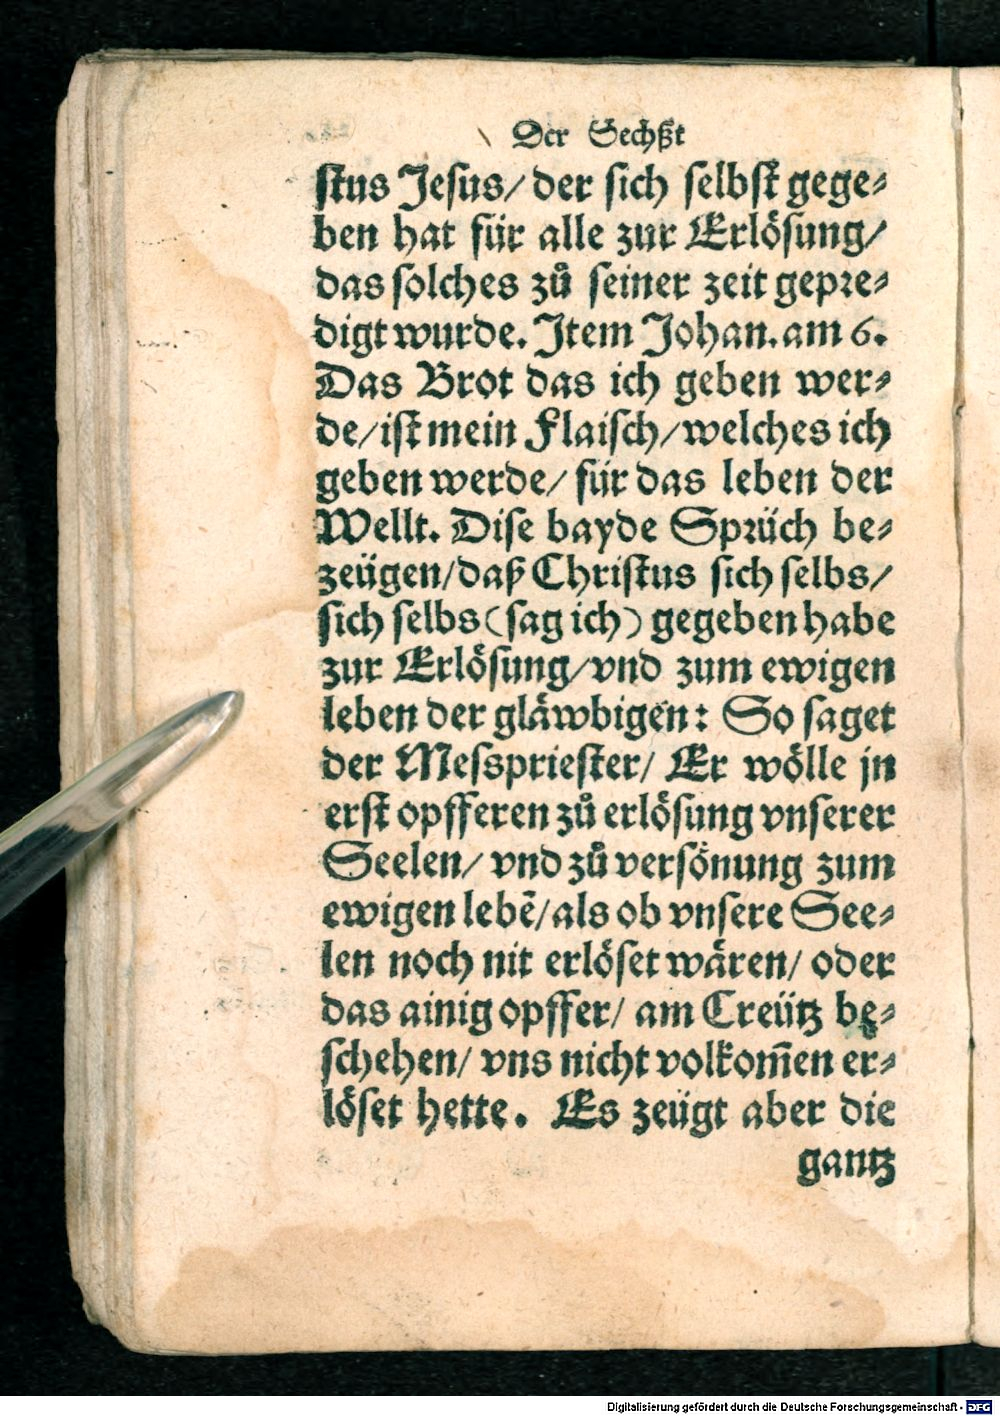 Der Sechßt
stus Jesus/ der sich selbst gege⸗
ben hat für alle zur Erlösung/
das solches zů seiner zeit gepre⸗
digt wurde. Item Johan. am 6.
Das Brot das ich geben wer⸗
de/ ist mein Flaisch/ welches ich
geben werde/ für das leben der
Wellt. Dise bayde Sprüch be⸗
zeügen/ daß Christus sich selbs/
sich selbs (sag ich) gegeben habe
zur Erlösung/ vnd zum ewigen
leben der gläwbigen: So saget
der Messpriester/ Er wölle jn
erst opfferen zů erlösung vnserer
Seelen/ vnd zů versönung zum
ewigen lebē/ als ob vnsere See⸗
len noch nit erlöset wären/ oder
das ainig opffer/ am Creütz be⸗
schehen/ vns nicht volkom̄en er⸗
löset hette. Es zeügt aber die
gantz
Digitalisierung gefördert durch die Deutsche Forschungsgemeinschaft - DFG